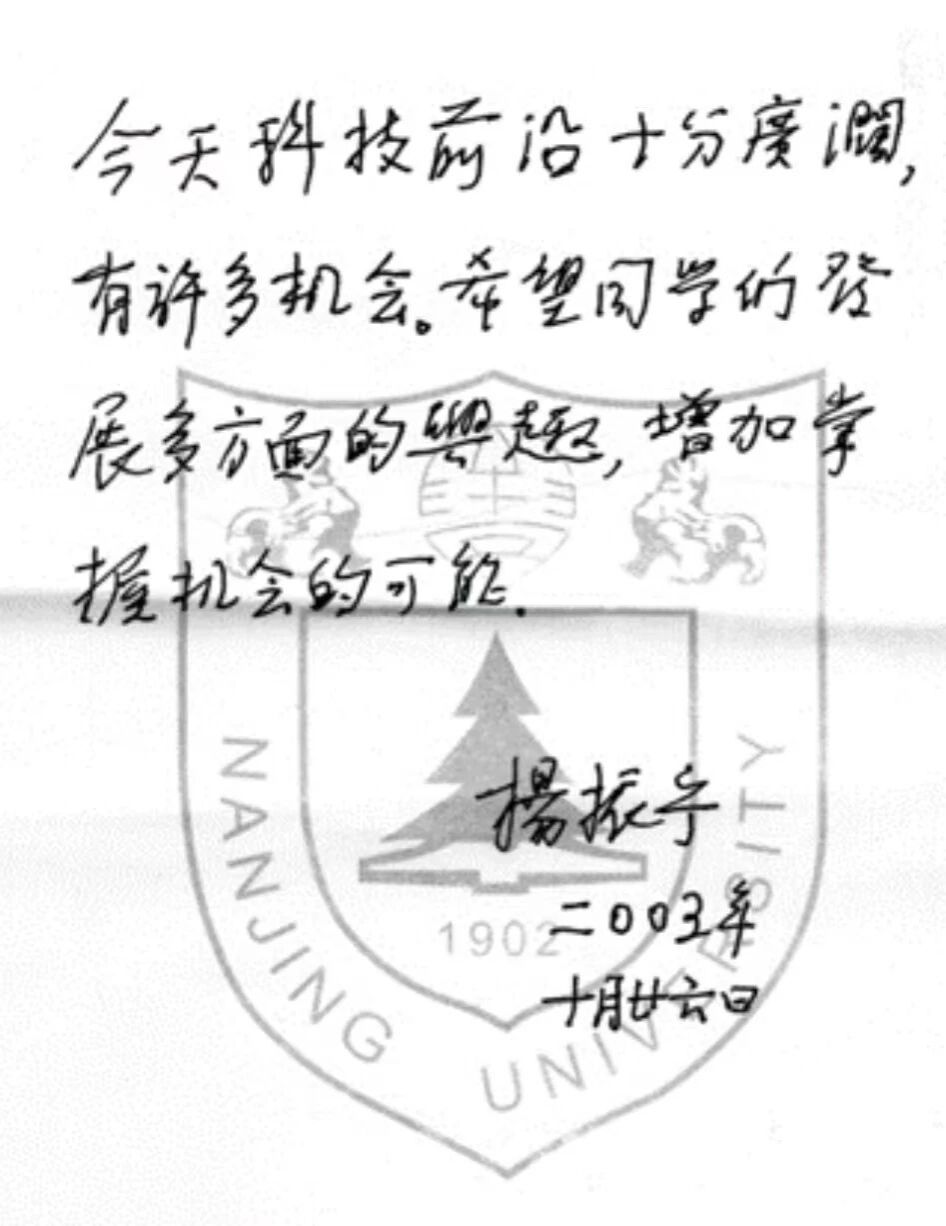 今天科技前沿十分廣濶,
有许多机会。希望同学们發
展多方面的興趣,增加掌
握机会的可能.
楊振宁
二〇〇三年
十月廿六日
1902
NANJING UNIVERSITY